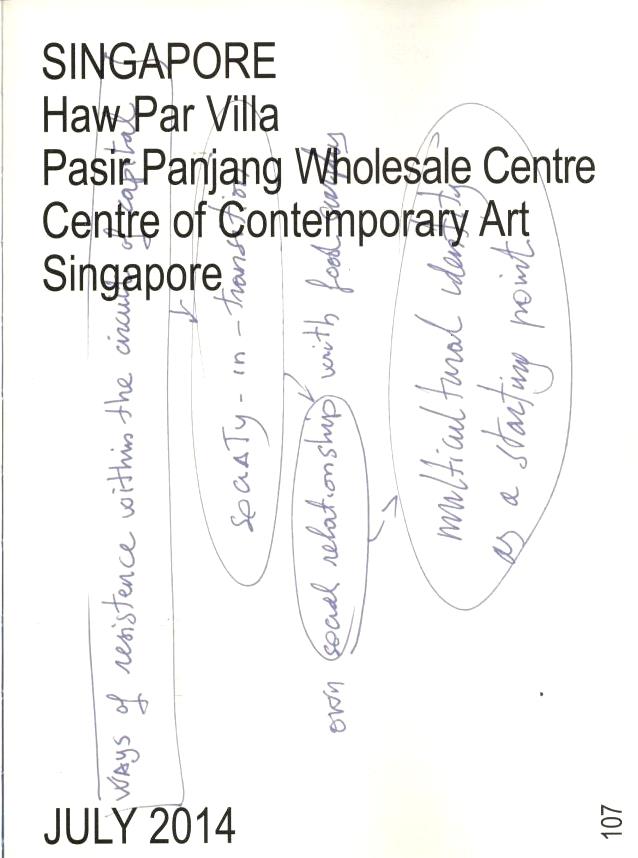 SINGAPORE
Haw Par Villa
Pasir Panjang Wholesale Centre
Centre of Contemporary Art
Singapore
ways of resistence within the circuits of capital
society-in-transition
own social relationship with food supply
multicultural identity
as a starting point
JULY 2014
107